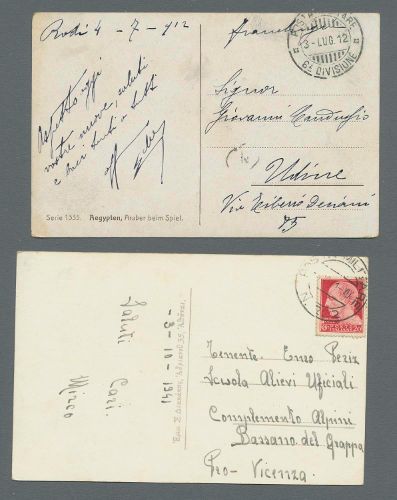 Rodi 4 - 7 - 912
Aspetto oggi
vostre nuove, saluti
e baci tutti a tutti
Serie 1335. Aegypten, Araber beim Spiel.
POSTA MILITARE
3 - LUG. 12
6ª DIVISIONE
Signor
Giovanni
Udine
Via Tiberio Deciani
75
Saluti Cari.
Mirco
-3-10-1941
Tenente Enzo Periz
Scuola Allievi Ufficiali
Complemento Alpini
Bassano del Grappa
Pro-Vicenza.